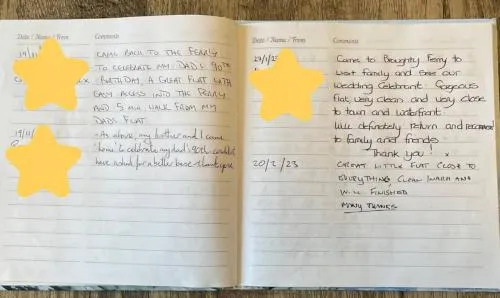 Date / Name / From Comments
19/11
CAME BACK TO THE FERRY
TO CELEBRATE MY DAD'S 90TH
BIRTHDAY, A GREAT FLAT WITH
EASY ACCESS INTO THE FERRY
AND 5 MIN WALK FROM MY
DADS FLAT.
19/11
- As above, my brother and I came
'home' to celebrate my dad's 90th couldn't
have asked for a better base - thank you
Date / Name / From Comments
Came to Broughty Ferry to
visit family and see our
Wedding Celebrant. Gorgeous
flat, very clean and very close
to town and waterfront.
Will definitely return and recommend
to family and friends
Thank you! x
20/2/23
GREAT LITTLE FLAT CLOSE TO
EVERYTHING, CLEAN, WARM AND
WELL FINISHED
MANY THANKS